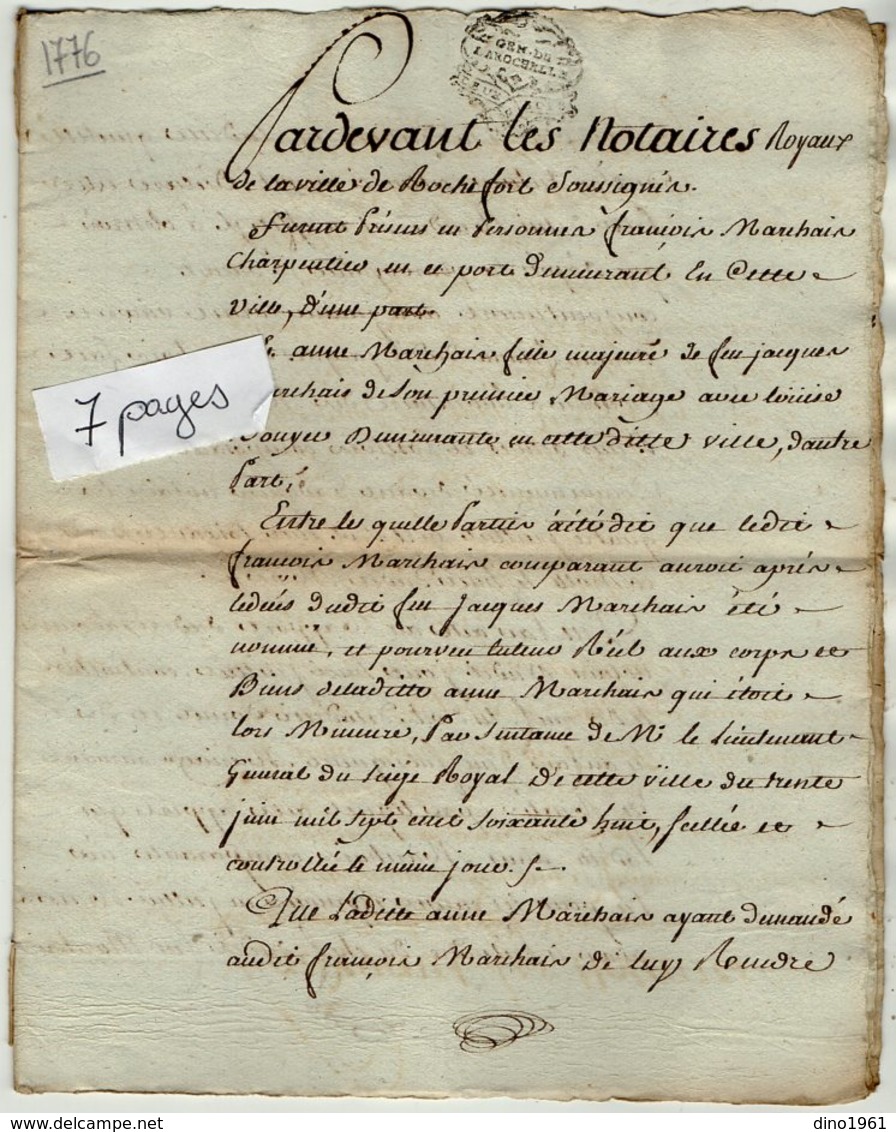 1776
GEN. DE
LAROCHELLE
Pardevant les Notaires Royaux
de la ville de Rochefort Soussignés.
furent présens en personnes françois Marchais
Charpentier en ce port demeurant En Cette
ville, d'une part
anne Marchais fille majeure de feu jacques
7 pages
archais de son premier Mariage avec Louise
ouyer Demeurante en cette ditte ville, dautre
Part,
Entre les quelle Parties a été dit que ledit
françois Marchais comparant auroit après
le décès dudit feu Jacques Marchais été
nommé, et pourveu tuteur Réel aux corps et
Biens de laditte anne Marchais qui étoit
lors Mineure, Par Sentance de Mr le Lieutenant
General du siége Royal De cette ville du trente
juin mil sept cent soixante huit, scellée et
controllée le même jour.
Que Ladiete anne Marchais ayant demandé
audit françois Marchais de luy Rendre
dino1961